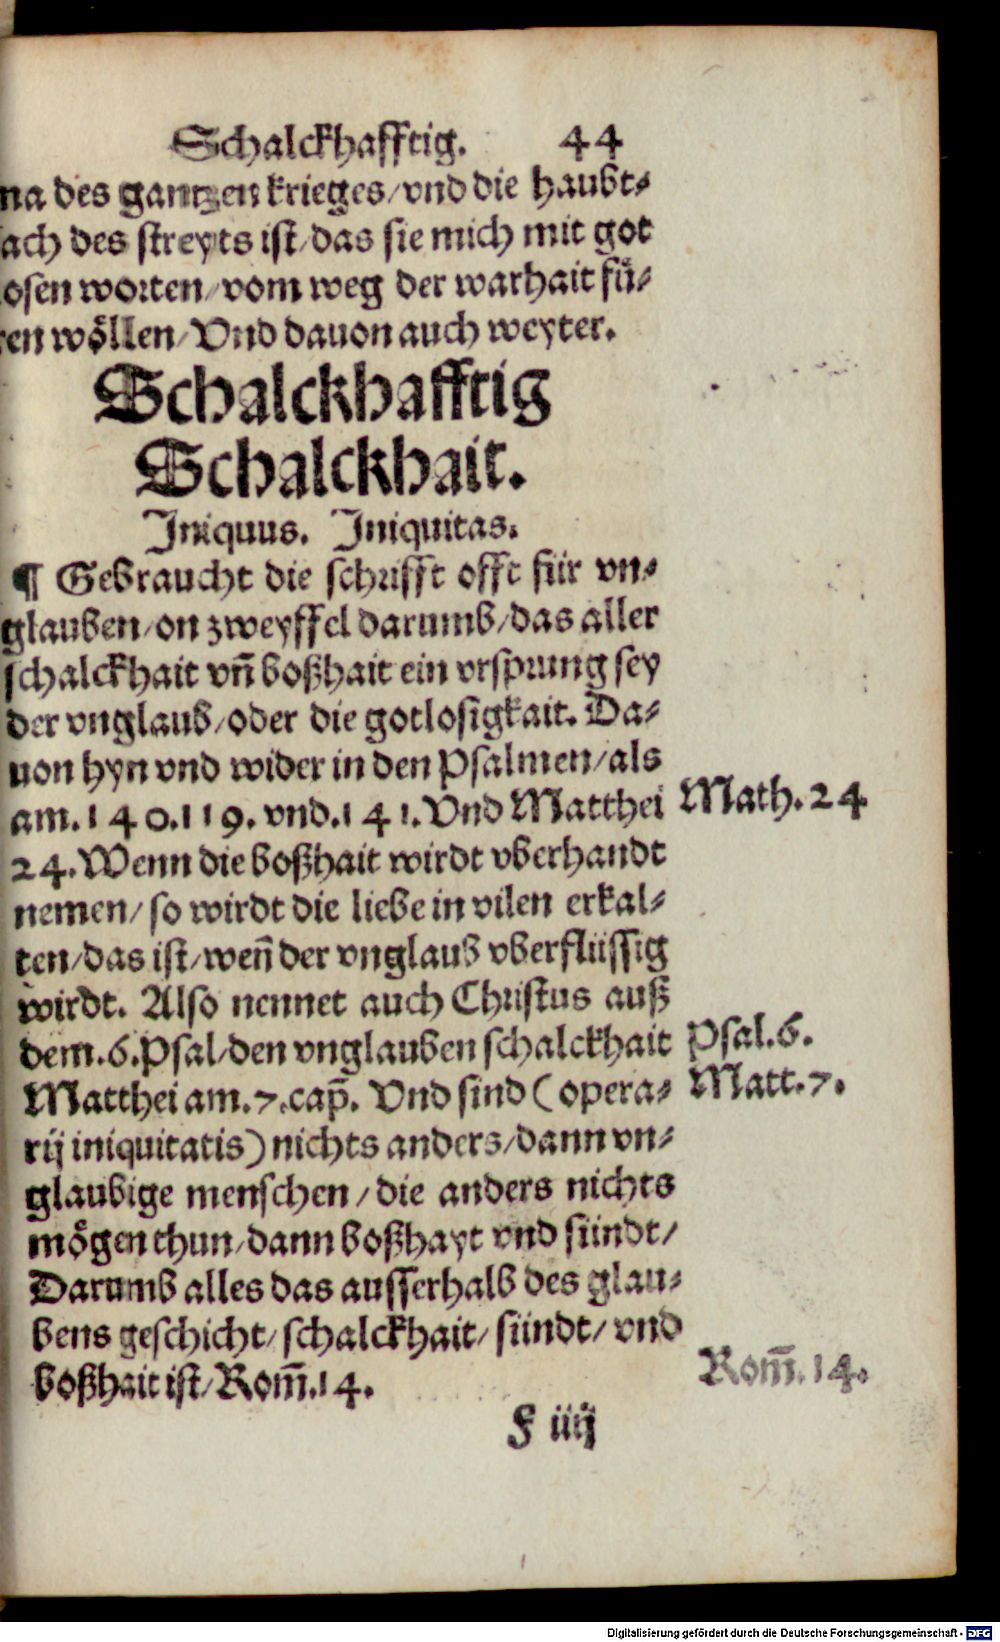 Schalckhafftig. 44
na des gantzen krieges/vnd die haubt⸗
ach des streyts ist/das sie mich mit got
osen worten/vom weg der warhait fü⸗
ren wöllen/Vnd dauon auch weyter.
Schalckhafftig
Schalckhait.
Iniquus. Iniquitas.
¶ Gebraucht die schrifft offt für vn⸗
glauben/on zweyffel darumb/das aller
schalckhait vñ boßhait ein vrsprung sey
der vnglaub/oder die gotlosigkait. Da⸗
uon hyn vnd wider in den Psalmen/als
am.140.119. vnd.141.Vnd Matthei
Math.24
24.Wenn die boßhait wirdt vberhandt
nemen/so wirdt die liebe in vilen erkal⸗
ten/das ist/weñ der vnglaub vberflüssig
wirdt. Also nennet auch Christus auß
dem.6.Psal/den vnglauben schalckhait
Psal.6.
Matthei am.7.cap̃. Vnd sind (opera⸗
Matt.7.
rij iniquitatis) nichts anders/dann vn⸗
glaubige menschen/die anders nichts
mögen thun/dann boßhayt vnd sündt/
Darumb alles das ausserhalb des glau⸗
bens geschicht/schalckhait/sündt/vnd
boßhait ist/Rom̃.14.
Rom̃.14.
F iiij
Digitalisierung gefördert durch die Deutsche Forschungsgemeinschaft - DFG